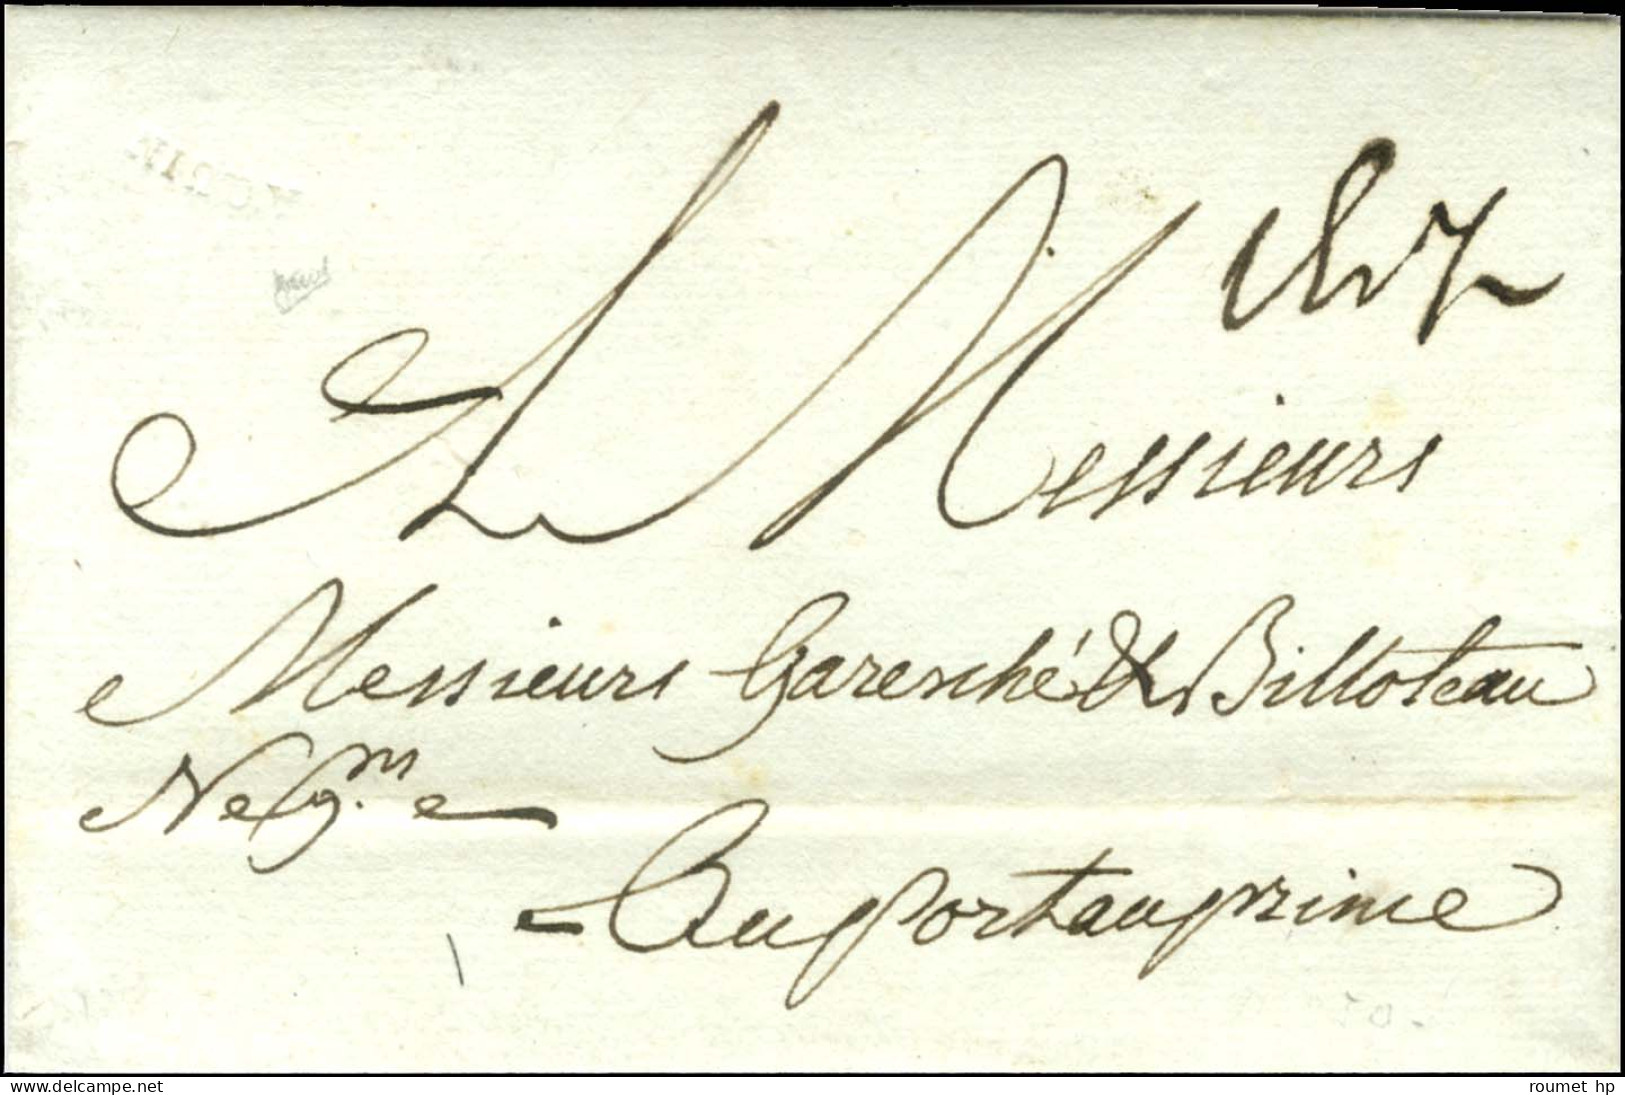 A Messieurs
Messieurs Garesché & Billoteau
Neg.ns
Au portauprince
50.
www.delcampe.net
roumet hp